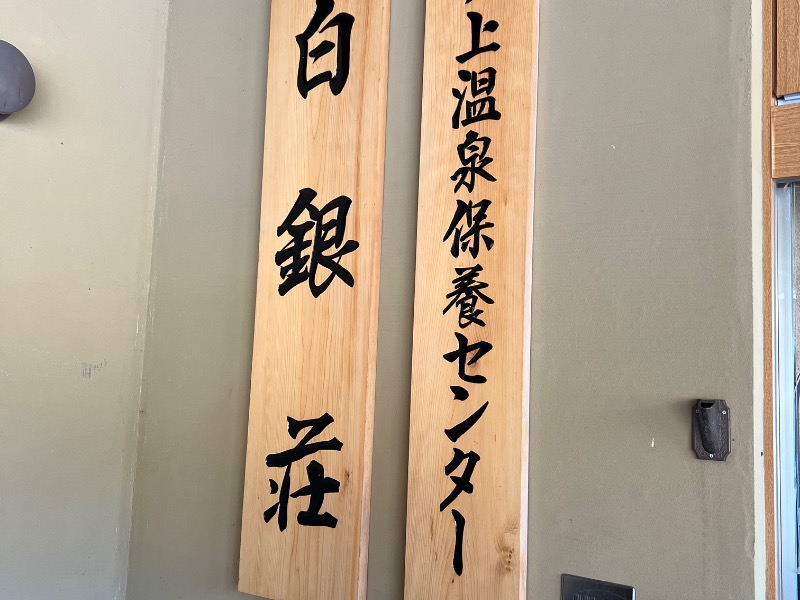 上温泉保養センター
白銀荘